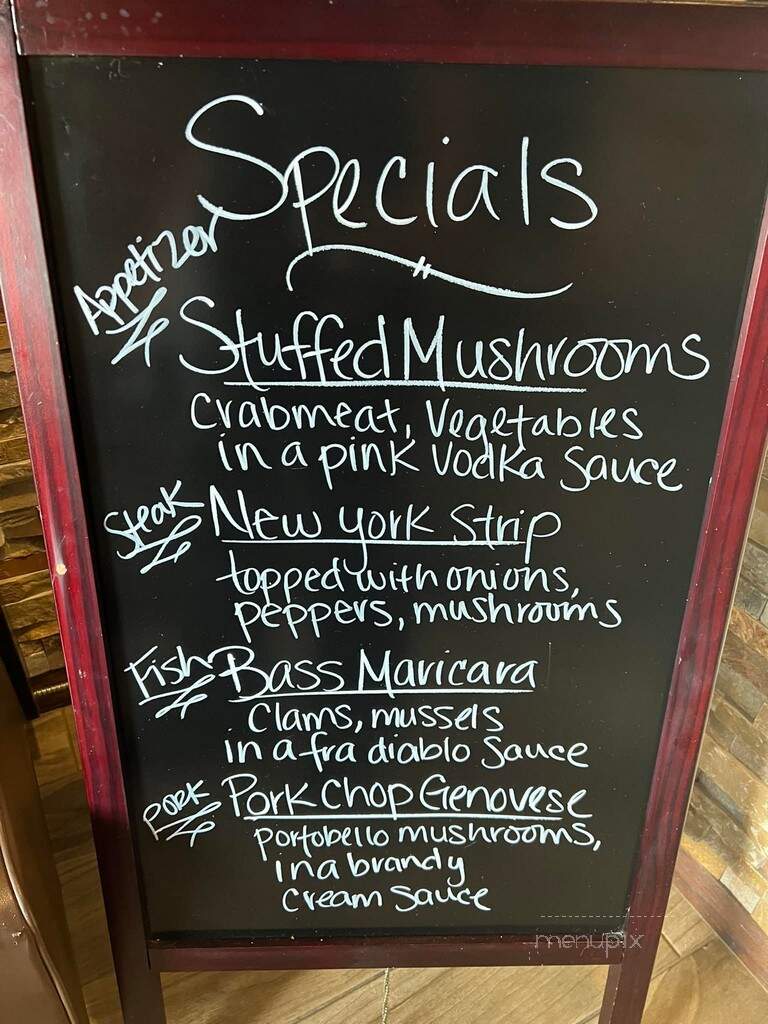 Specials
Appetizer
Stuffed Mushrooms
Crabmeat, Vegetables
in a pink Vodka Sauce
Steak
New York Strip
topped with onions,
peppers, mushrooms
Fish
Bass Maricara
Clams, mussels
in a fra diablo Sauce
Pork
Pork Chop Genovese
portobello mushrooms,
in a brandy
Cream Sauce
menupix